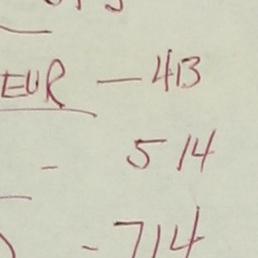 EUR - 413
- 514
- 714